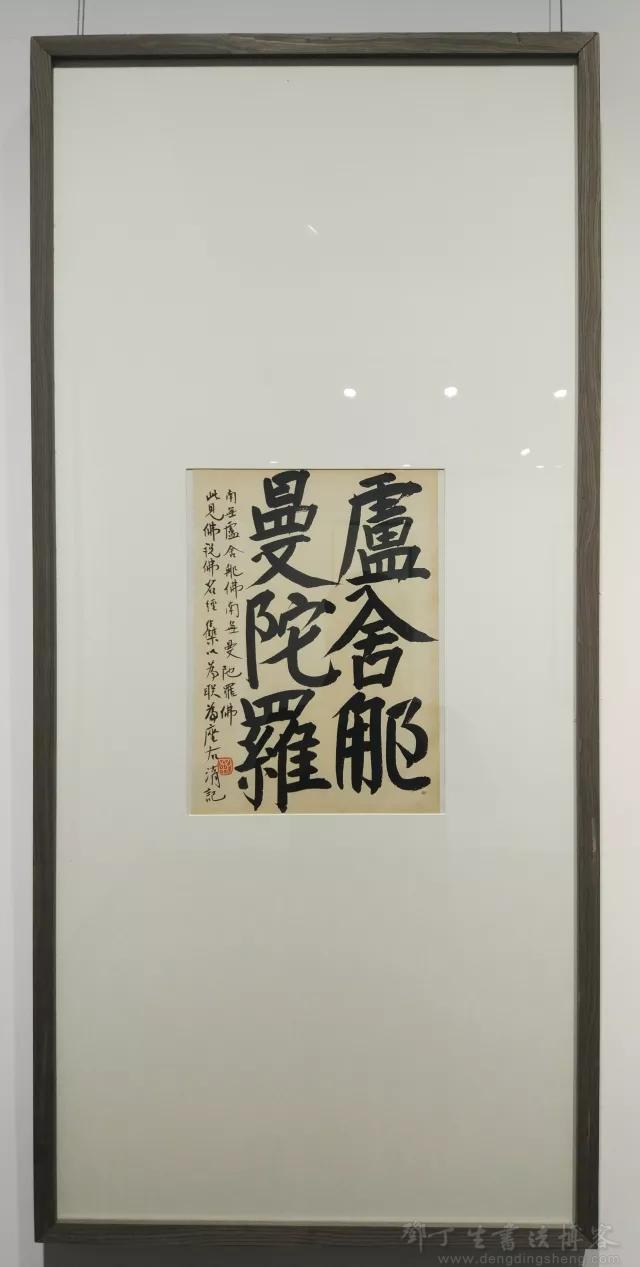 盧舍那
曼陀羅
南无盧舍那佛南无曼陀羅佛
此見佛説佛名經集以為联為座右清記
鄧丁生書法博客
www.dengdingsheng.com